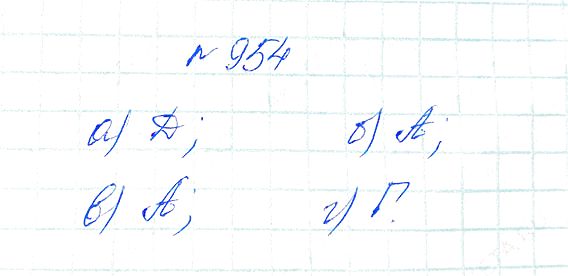 № 954
а) Д; б) А;
в) А; г) Г.